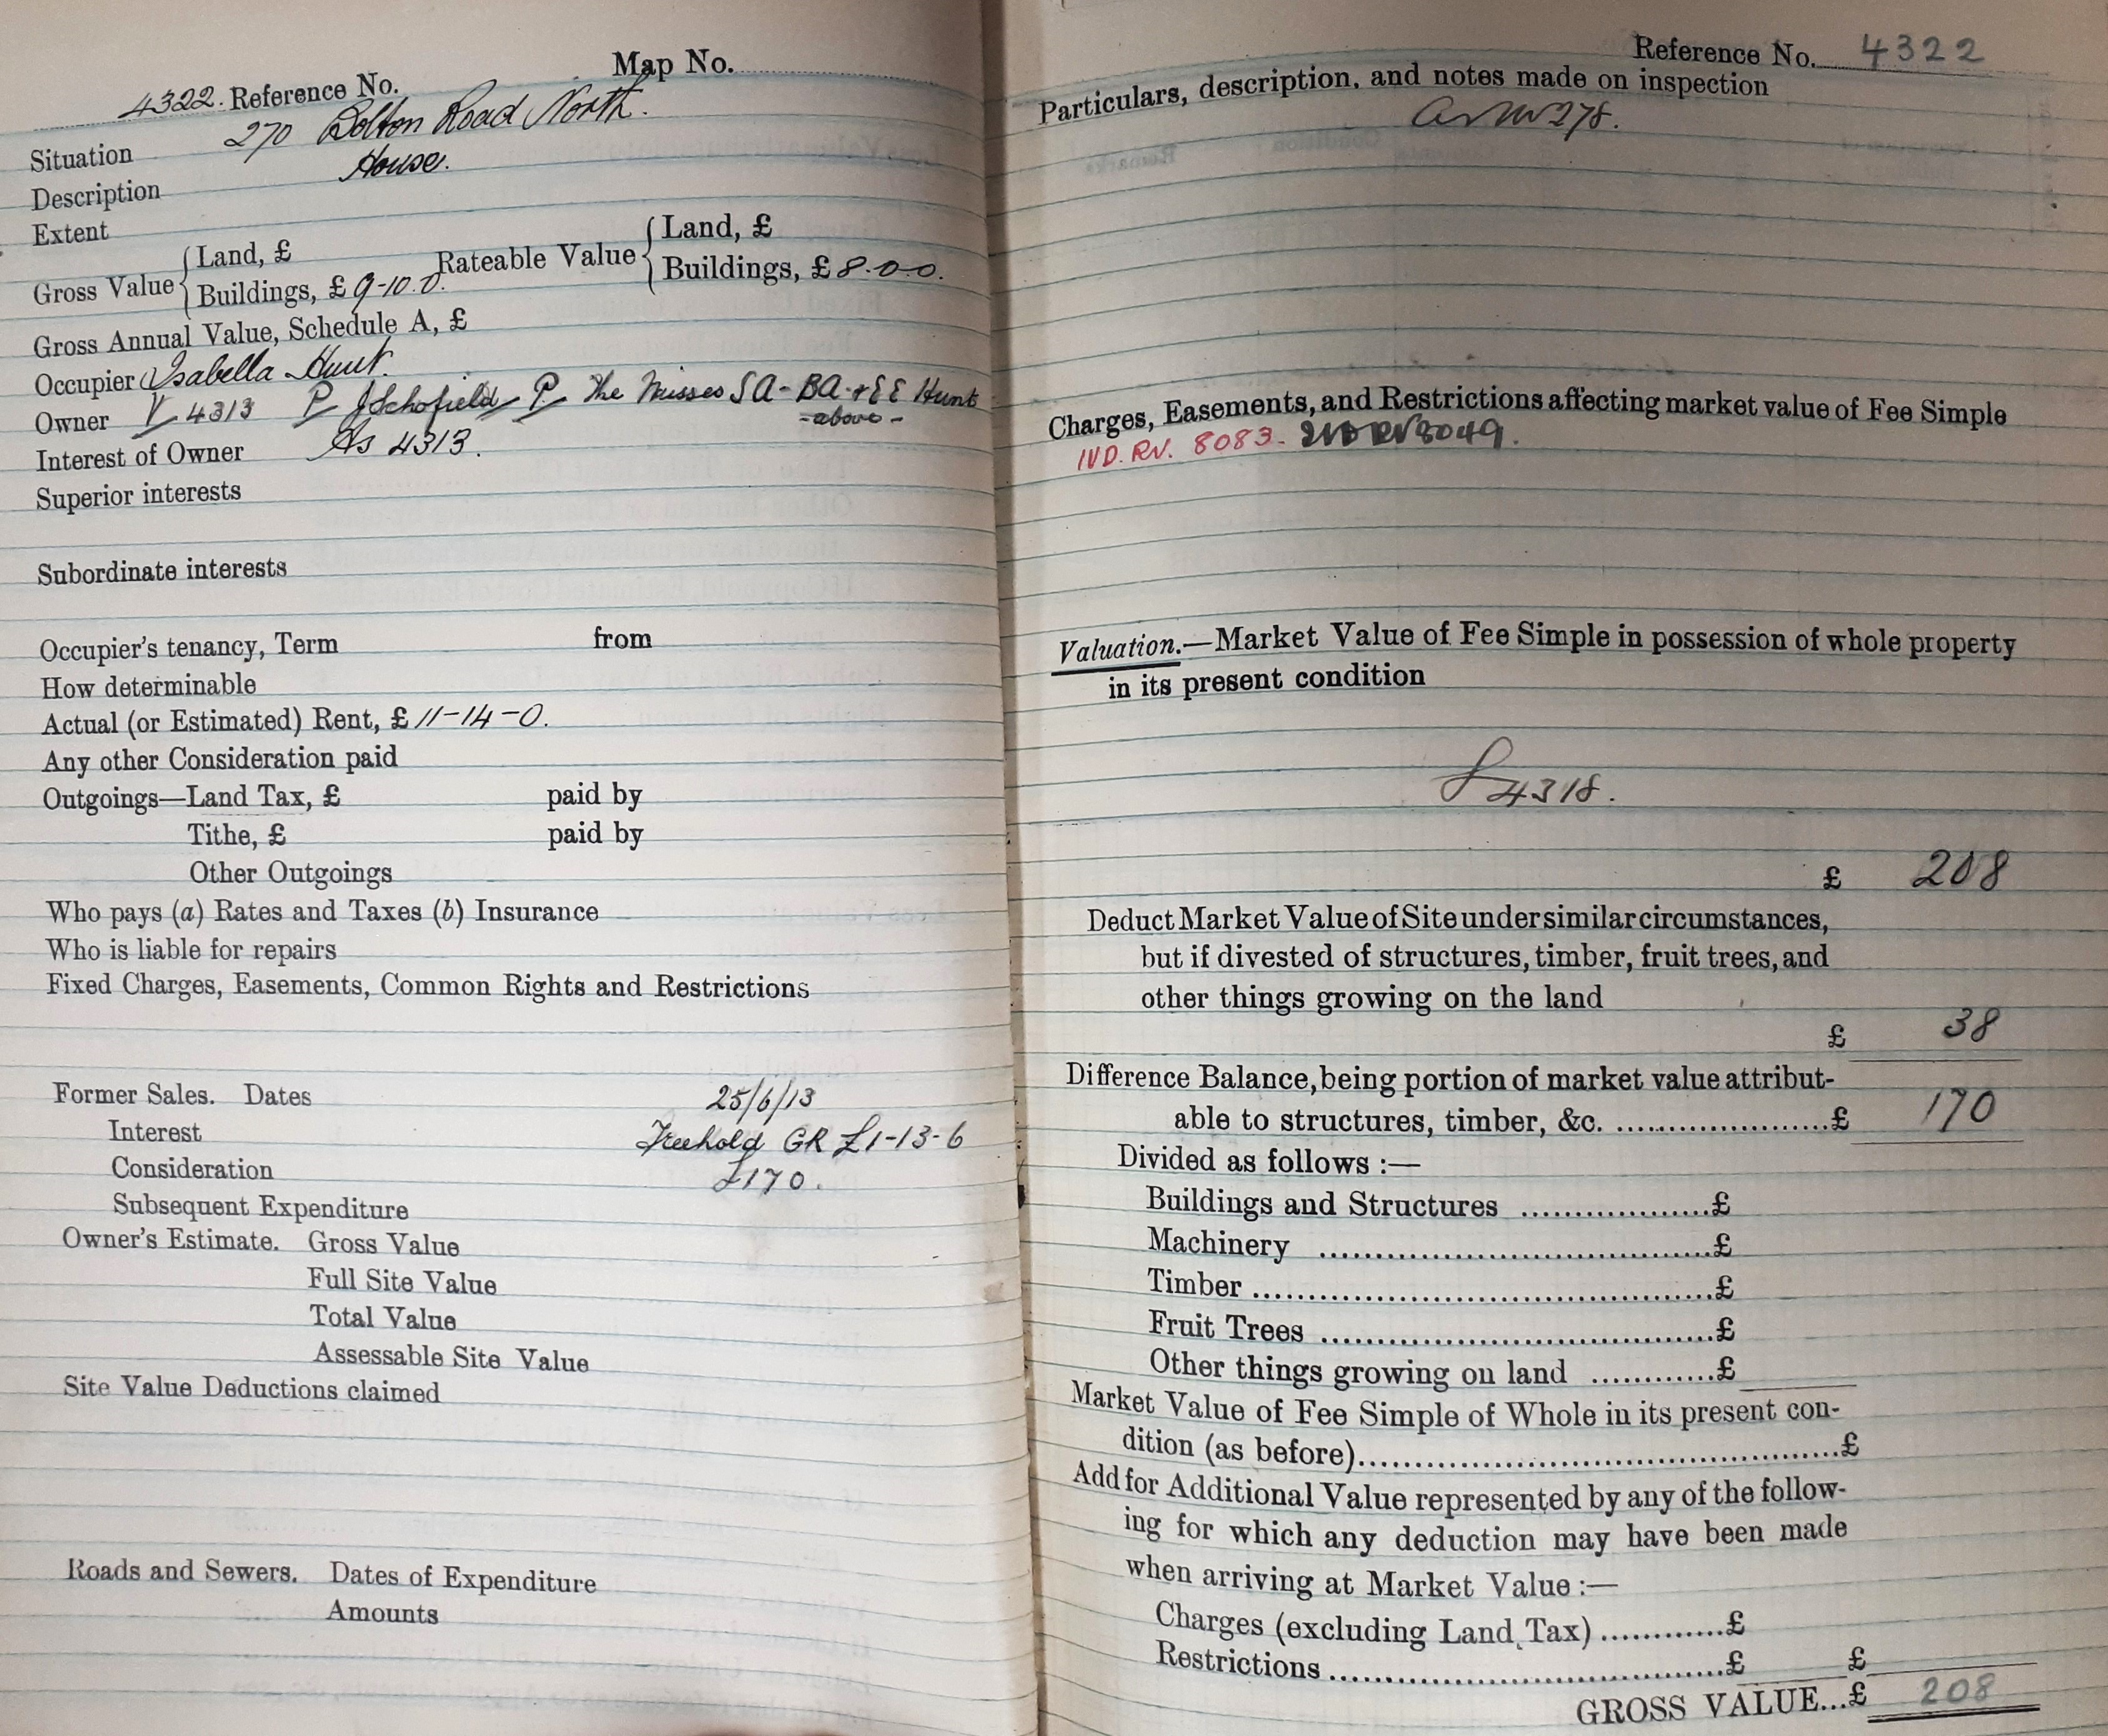 Map No.
4322. Reference No.
Situation 270 Bolton Road North.
Description House.
Extent
Gross Value { Land, £
Buildings, £ 9-10.0. Rateable Value { Land, £
Buildings, £ 8-0-0.
Gross Annual Value, Schedule A, £
Occupier Isabella Hunt.
Owner V 4313 P J Schofield P The Misses SA- BA- & EE Hunt
- above -
Interest of Owner As 4313.
Superior interests
Subordinate interests
Occupier's tenancy, Term from
How determinable
Actual (or Estimated) Rent, £ 11-14-0.
Any other Consideration paid
Outgoings—Land Tax, £ paid by
Tithe, £ paid by
Other Outgoings
Who pays (a) Rates and Taxes (b) Insurance
Who is liable for repairs
Fixed Charges, Easements, Common Rights and Restrictions
Former Sales. Dates 25/6/13
Interest Freehold GR £1-13-6
Consideration £170.
Subsequent Expenditure
Owner's Estimate. Gross Value
Full Site Value
Total Value
Assessable Site Value
Site Value Deductions claimed
Roads and Sewers. Dates of Expenditure
Amounts
Reference No. 4322
Particulars, description, and notes made on inspection
278.
Charges, Easements, and Restrictions affecting market value of Fee Simple
IVD. RV. 8083.
Valuation.—Market Value of Fee Simple in possession of whole property
in its present condition
4318.
£ 208
Deduct Market Value of Site under similar circumstances,
but if divested of structures, timber, fruit trees, and
other things growing on the land
£ 38
Difference Balance, being portion of market value attribut-
able to structures, timber, &c. ....................£ 170
Divided as follows :—
Buildings and Structures ...................£
Machinery ........................................£
Timber ..............................................£
Fruit Trees .......................................£
Other things growing on land ............£
Market Value of Fee Simple of Whole in its present con-
dition (as before)................................................£
Add for Additional Value represented by any of the follow-
ing for which any deduction may have been made
when arriving at Market Value :—
Charges (excluding Land Tax) ............£
Restrictions .......................................£ £
GROSS VALUE...£ 208